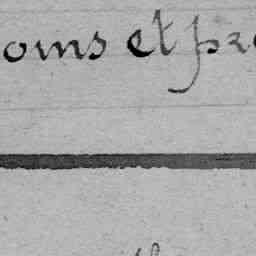 oms et pre